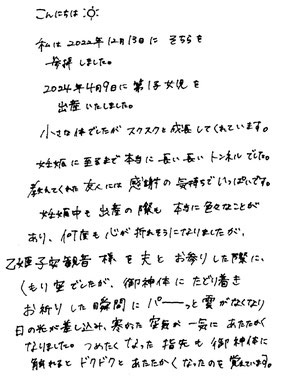 こんにちは
私は2022年12月13日に そちらを
参拝しました。
2024年4月9日に第1子女児を
出産いたしました。
小さな体でしたがスクスクと成長してくれています。
妊娠に至るまで本当に長い長いトンネルでした。
教えてくれた友人には感謝の気持ちでいっぱいです。
妊娠中も出産の際も本当に色々なことが
あり、何度も心が折れそうになりましたが、
乙姫子安観音様を夫とお参りした際に、
くもり空でしたが、御神体にたどり着き
お祈りした瞬間にパーーっと雲がなくなり
日の光が差し込み、寒かった空気が一気にあたたかく
なりました。つめたくなった指先も御神体に
触れるとドクドクとあたたかくなったのを覚えています。